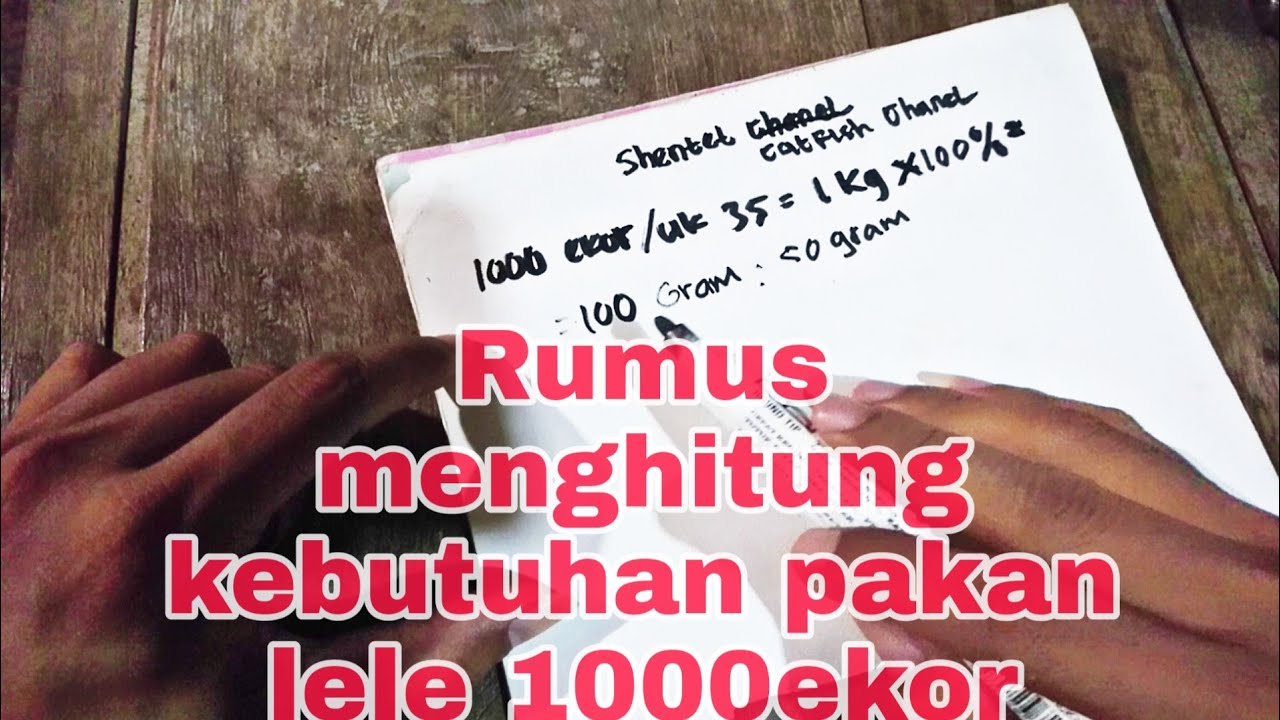 Shentel Chanel
Catfish Chanel
1000 ekor/uk 35 = 1 Kg x 100% =
= 100 Gram : 50 gram
Rumus
menghitung
kebutuhan pakan
lele 1000ekor